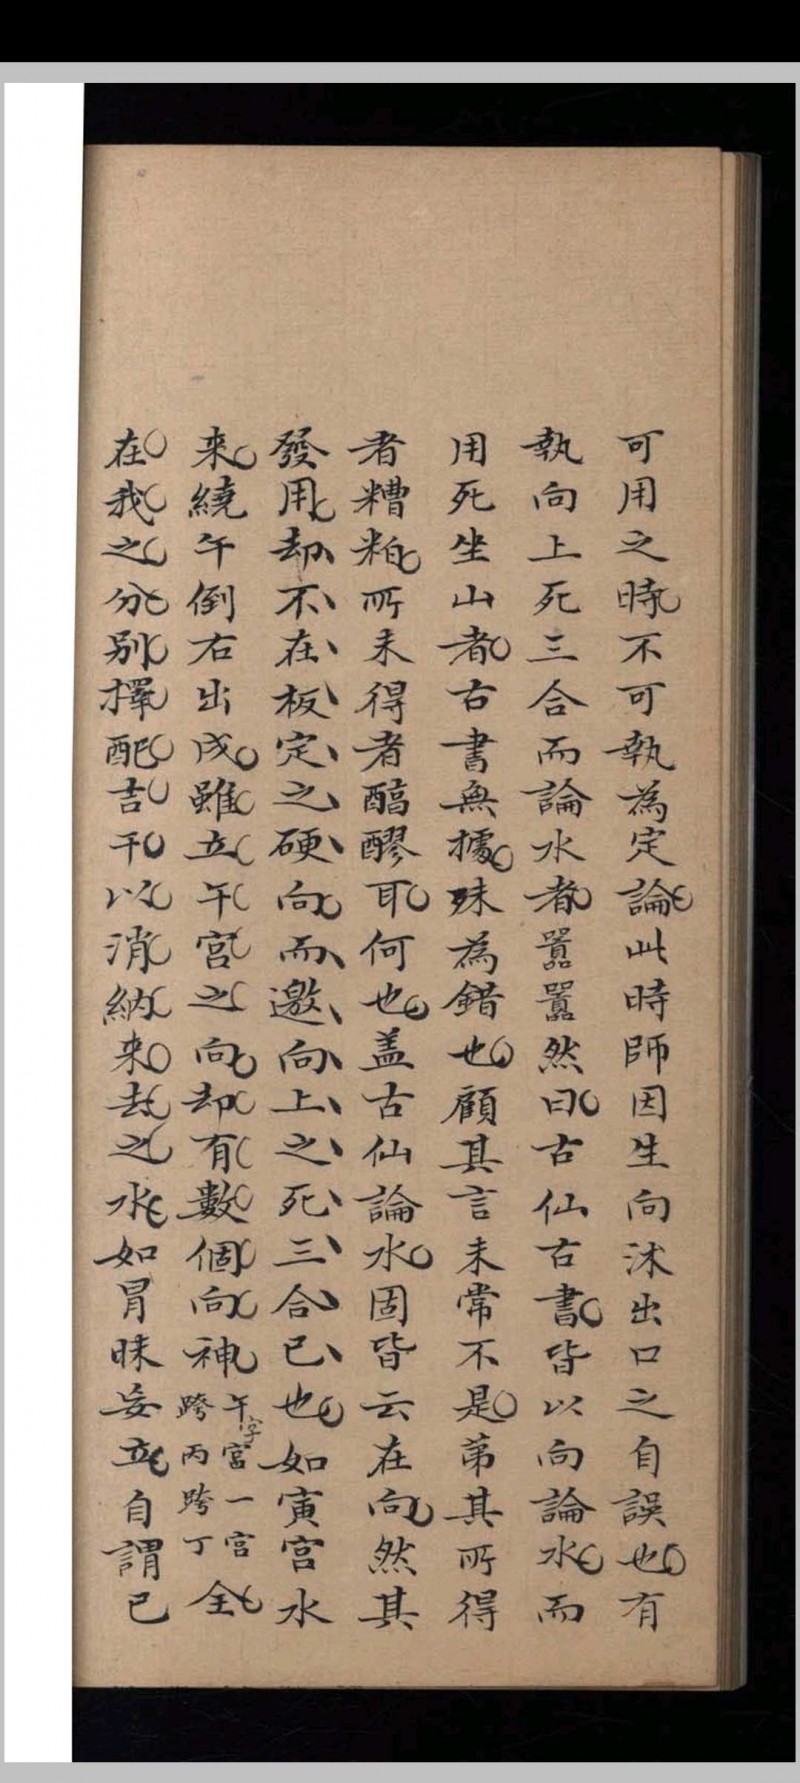 可用之時不可執為定論此時師因生向沐出口之自誤也有
執向上死三合而論水者囂囂然曰古仙古書皆以向論水而
用死坐山者古書無據殊為錯也顧其言未常不是第其所得
者糟粕所未得者醕醪耳何也盖古仙論水固皆云在向然其
發用却不在板定之硬向而邀向上之死三合已也如寅宮水
來繞午倒右出戌雖立午宮之向却有數個向神午字宮一宮跨丙跨丁全
在我之分別擇配吉干以消納來去之水如冐昧妄立自謂已